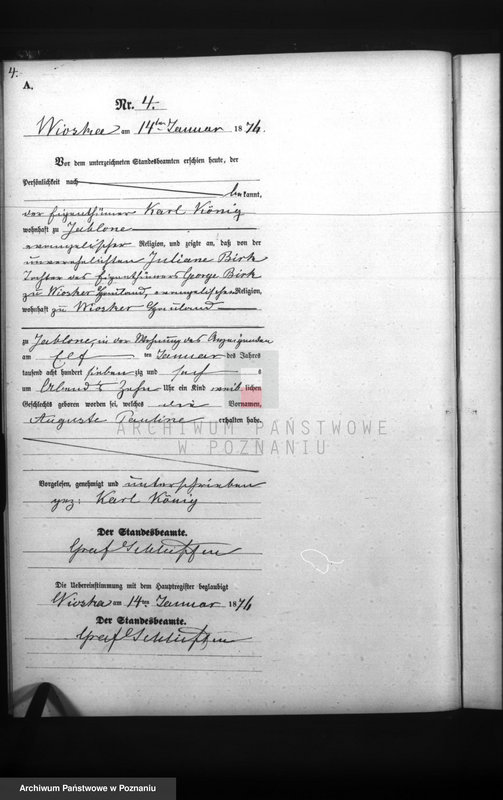 4.
A.
Nr. 4.
Wioska am 14ten Januar 1876.
Vor dem unterzeichneten Standesbeamten erschien heute, der
Persönlichkeit nach
bekannt,
der Eigenthümer Karl König
wohnhaft zu Jablone
evangelischer Religion, und zeigte an, daß von der
unverehelichten Juliane Birk
Tochter des Eigenthümers George Birk
zu Wiosker Hauland, evangelischer Religion,
wohnhaft zu Wiosker Hauland
zu Jablone, in der Wohnung des Anzeigenden
am Elf ten Januar des Jahres
tausend acht hundert siebenzig und sechs
um Abends Zehn Uhr ein Kind weiblichen
Geschlechts geboren worden sei, welches die Vornamen,
Auguste Pauline erhalten habe.
Vorgelesen, genehmigt und unterschrieben
gez: Karl König
Der Standesbeamte.
Graf
Die Uebereinstimmung mit dem Hauptregister beglaubigt
Wioska am 14ten Januar 1876
Der Standesbeamte.
Graf
ARCHIWUM PAŃSTWOWE
W POZNANIU
Archiwum Państwowe w Poznaniu